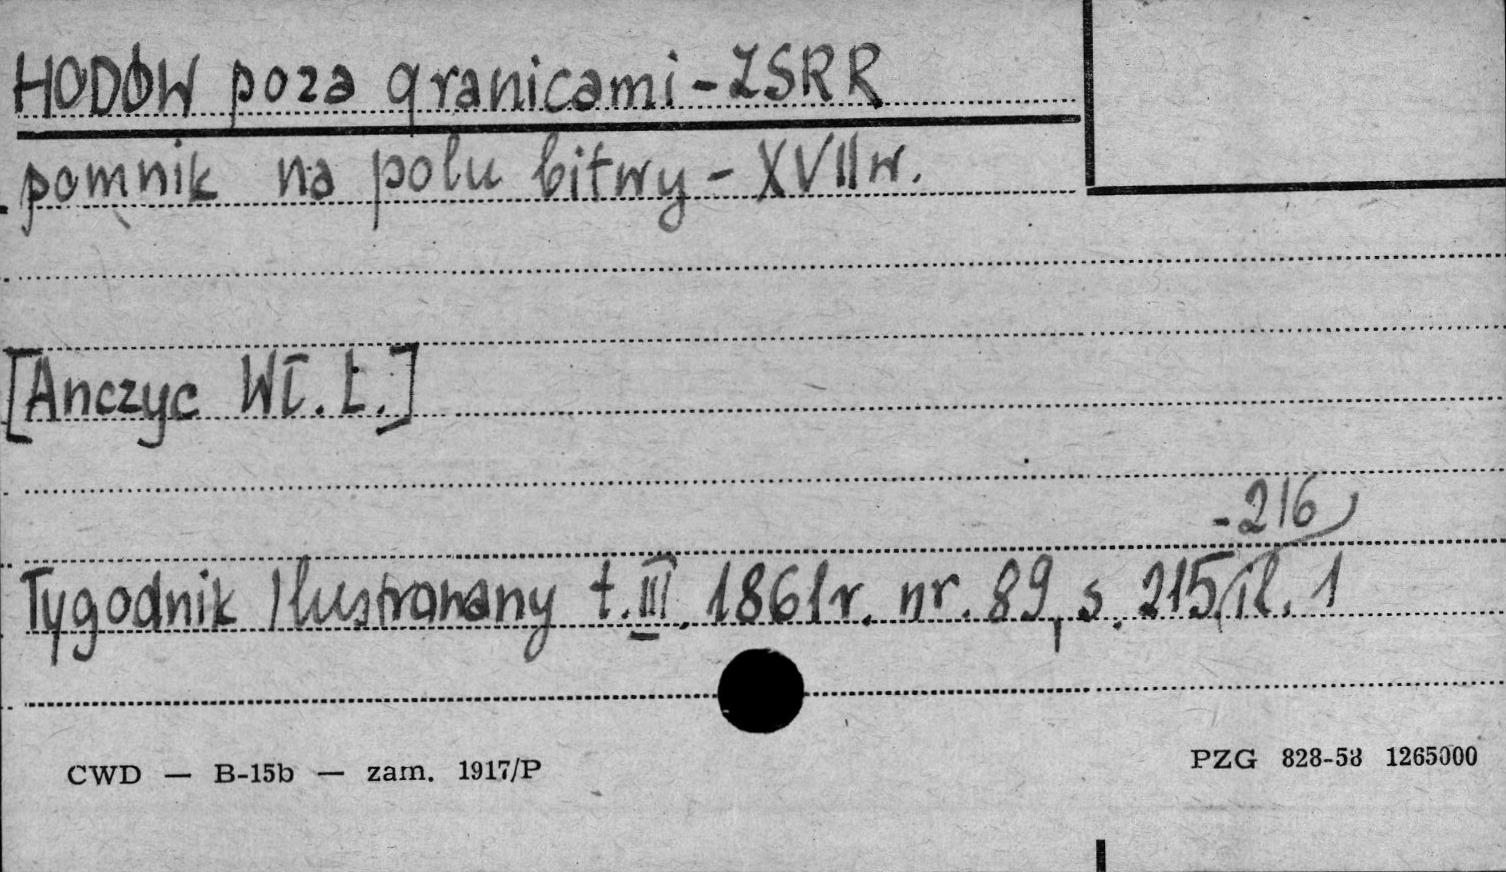 HODÓW poza granicami - ZSRR
pomnik na polu bitwy - XVII w.
[Anczyc Wł. L.]
Tygodnik Ilustrowany t. III. 1861 r. nr. 89, s. 215-216, il. 1
CWD — B-15b — zam. 1917/P
PZG 828-58 1265000